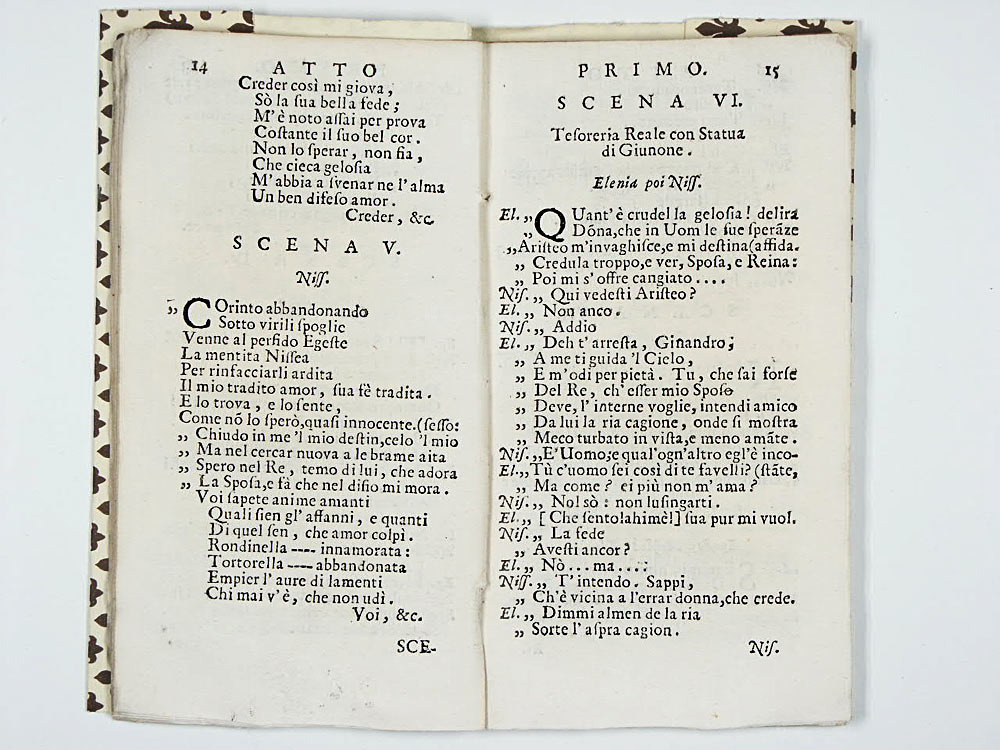 14 ATTO
Creder così mi giova,
Sò la ſua bella fede;
M'è noto aſſai per prova
Coſtante il ſuo bel cor.
Non lo ſperar, non fia,
Che cieca geloſia
M'abbia a ſvenar ne l'alma
Un ben difeſo amor.
Creder, &c.
SCENA V.
Niſſ.
„ COrinto abbandonando
Sotto virili ſpoglie
Venne al perfido Egeſte
La mentita Niſſea
Per rinfacciarli ardita
Il mio tradito amor, ſua fè tradita.
E lo trova, e lo ſente,
Come nō lo ſperò,quaſi innocente.(ſeſſo:
„ Chiudo in me 'l mio deſtin,celo 'l mio
„ Ma nel cercar nuova a le brame aita
„ Spero nel Re, temo di lui, che adora
„ La Spoſa,e fà che nel diſio mi mora.
Voi ſapete anime amanti
Quali ſien gl'affanni, e quanti
Di quel ſen, che amor colpì.
Rondinella ---- innamorata:
Tortorella ---- abbandonata
Empier l'aure di lamenti
Chi mai v'è, che non udì.
Voi, &c.
SCE-
PRIMO. 15
SCENA VI.
Teſoreria Reale con Statua
di Giunone.
Elenia poi Niſſ.
El. „ QUant'è crudel la geloſia! delira
„ Dōna,che in Uom le ſue ſperāze
„Ariſteo m'invaghiſce,e mi deſtina(affida.
„ Credula troppo,e ver, Spoſa, e Reina:
„ Poi mi s'offre cangiato ....
Niſ. „ Qui vedeſti Ariſteo?
El. „ Non anco.
Niſ. „ Addio
El. „ Deh t'arreſta, Ginandro;
„ A me ti guida 'l Cielo,
„ E m'odi per pietà. Tu, che ſai forſe
„ Del Re, ch'eſſer mio Spoſo
„ Deve, l'interne voglie, intendi amico
„ Da lui la ria cagione, onde ſi moſtra
„ Meco turbato in viſta,e meno amāte.
Niſ.„E'Uomo;e qual'ogn'altro egl'è inco-
El.„Tù c'uomo ſei così di te favelli?(ſtāte,
„ Ma come? ei più non m'ama?
Niſ. „ Nol sò: non luſingarti.
El. „ [Che ſento!ahimèl] ſua pur mi vuol.
Niſ. „ La fede
„ Aveſti ancor?
El. „ Nò...ma....:
Niſſ. „ T'intendo. Sappi,
„ Ch'è vicina a l'errar donna,che crede.
El. „ Dimmi almen de la ria
„ Sorte l'aſpra cagion.
Niſ.